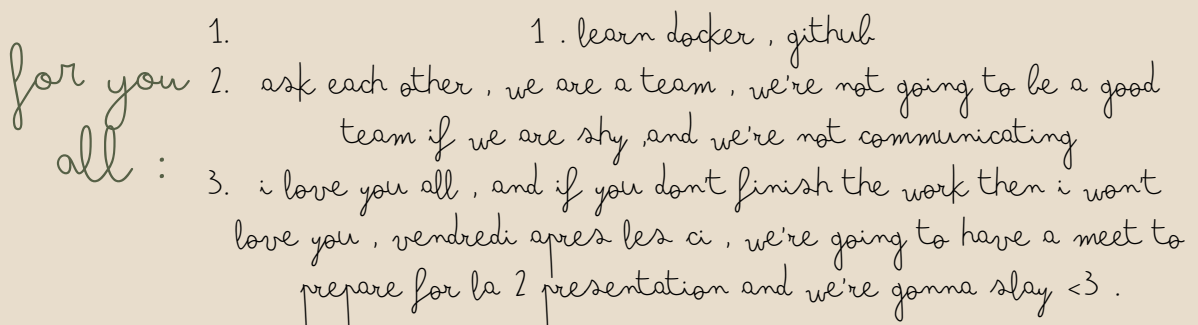 for you
all :
1. 1 . learn docker , github
2. ask each other , we are a team , we're not going to be a good
team if we are shy ,and we're not communicating
3. i love you all , and if you don't finish the work then i won't
love you , vendredi apres les ci , we're going to have a meet to
prepare for la 2 presentation and we're gonna slay <3 .